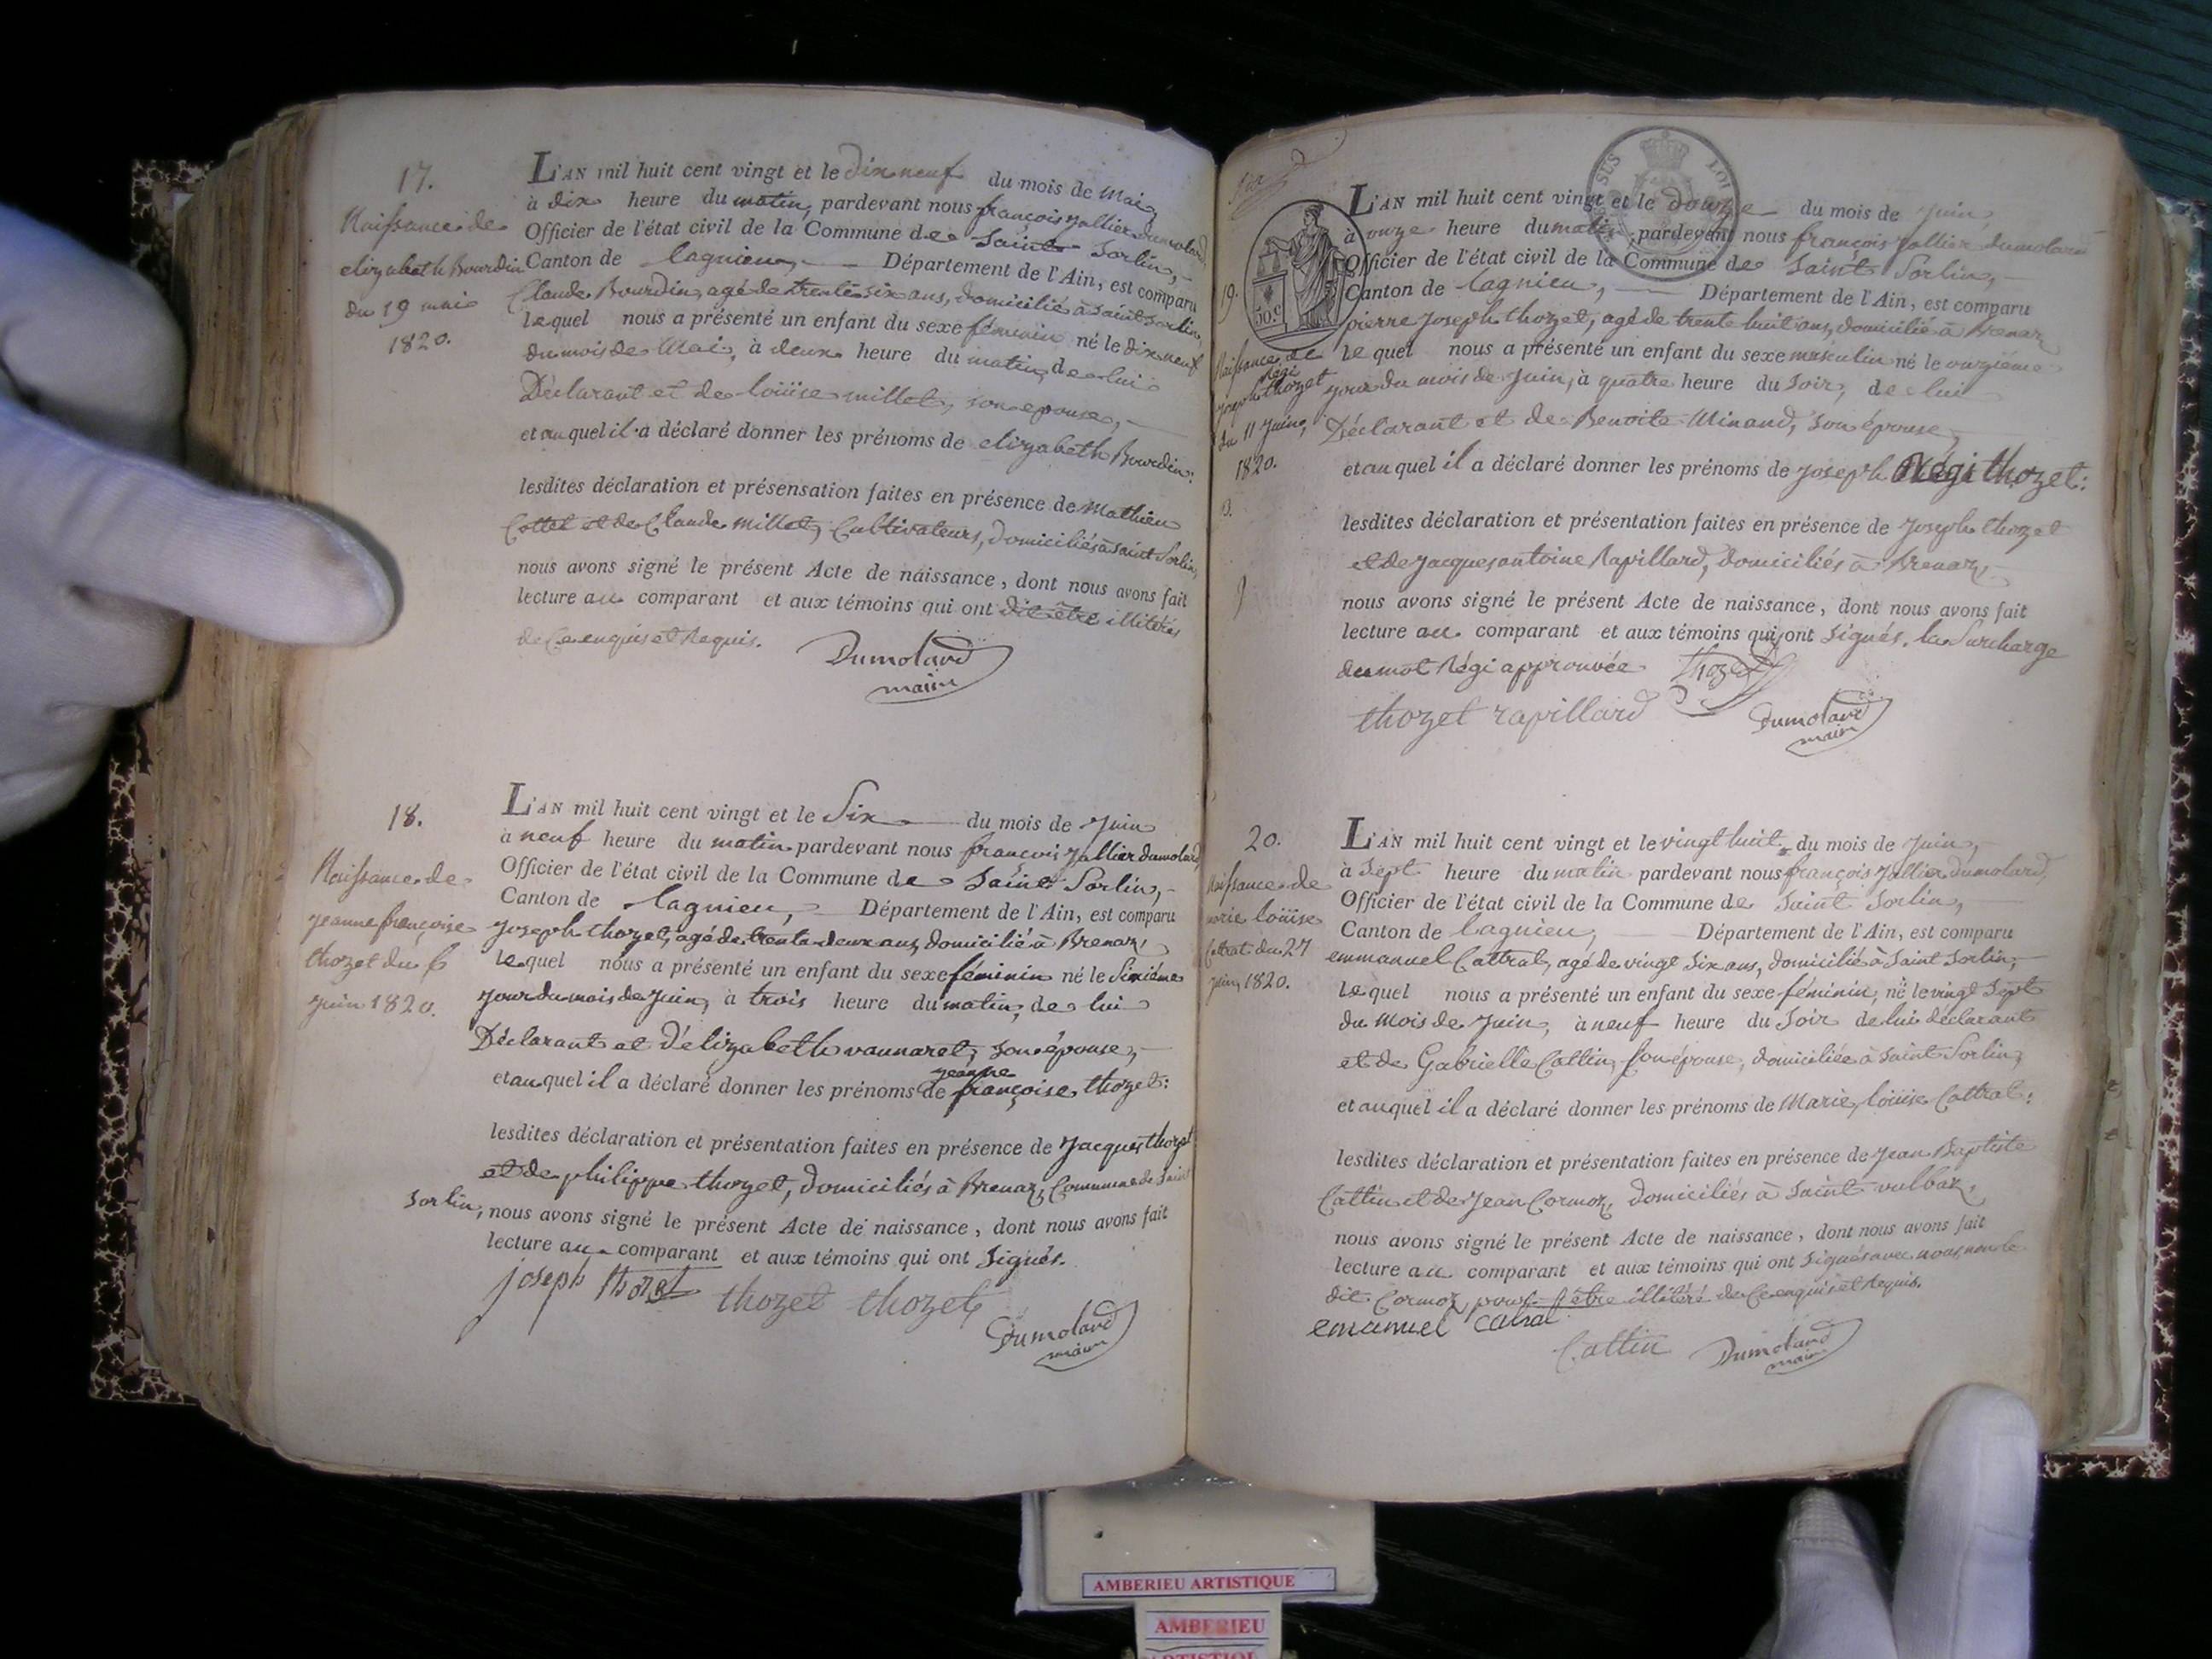 17.
Naissance de
elizabeth Bourdin
du 19 mai
1820.
L'AN mil huit cent vingt et le dix neuf du mois de Mai,
à dix heure du matin, pardevant nous françois jallier dumolard,
Officier de l'état civil de la Commune de Saint Sorlin,
Canton de Lagnieu, Département de l'Ain, est comparu
Claude Bourdin, agé de trente six ans, domicilié à saint sorlin,
lequel nous a présenté un enfant du sexe féminin né le dix neuf
du mois de Mai, à deux heure du matin, de lui
Déclarant et de loüise millet, son epouse,
et au quel il a déclaré donner les prénoms de elizabeth Bourdin:
lesdites déclaration et présensation faites en présence de Mathieu
Cottet et de Claude millet, Cultivateurs, domiciliés à saint Sorlin,
nous avons signé le présent Acte de naissance, dont nous avons fait
lecture au comparant et aux témoins qui ont dit être illiterés
de Ce enquis et Requis.
Dumolard
maire
18.
Naissance de
jeanne françoise
thozet du 6
juin 1820.
L'AN mil huit cent vingt et le Six du mois de juin
à neuf heure du matin pardevant nous françois jallier dumolard,
Officier de l'état civil de la Commune de Saint Sorlin,
Canton de Lagnieu, Département de l'Ain, est comparu
joseph thozet, agé de trente deux ans, domicilié à Brenaz,
lequel nous a présenté un enfant du sexe féminin né le Sixième
jour du mois de juin, à trois heure du matin, de lui
Déclarant et d'élizabeth vannaret, son épouse,
jeanne
et au quel il a déclaré donner les prénoms de françoise thozet:
lesdites déclaration et présentation faites en présence de jacques thozet
et de philippe thozet, domiciliés à Brenaz, Commune de Saint
Sorlin, nous avons signé le présent Acte de naissance, dont nous avons fait
lecture au comparant et aux témoins qui ont Signés.
joseph thozet thozet thozet
Dumolard
maire
SUS LOI
50.c
19.
Naissance de
Régi
joseph thozet
du 11 juin,
1820.
L'AN mil huit cent vingt et le douze du mois de juin,
à onze heure du matin, pardevant nous françois jallier dumolard
Officier de l'état civil de la Commune de Saint Sorlin,
Canton de Lagnieu, Département de l'Ain, est comparu
pierre joseph thozet, agé de trente huit ans, domicilié à Brenaz
lequel nous a présenté un enfant du sexe masculin né le onzième
jour du mois de juin, à quatre heure du Soir, de lui
Déclarant et de Benoite Minand, son épouse,
et au quel il a déclaré donner les prénoms de joseph Régi thozet:
lesdites déclaration et présentation faites en présence de joseph thozet
et de jacques antoine Rapillard, domiciliés à Brenaz,
nous avons signé le présent Acte de naissance, dont nous avons fait
lecture au comparant et aux témoins qui ont signés. la Surcharge
du mot Régi approuvée thozet
thozet rapillard
Dumolard
maire
20.
Naissance de
marie loüise
Cattrat du 27
juin, 1820.
L'AN mil huit cent vingt et le vingt huit du mois de juin,
à Sept heure du matin pardevant nous françois jallier dumolard,
Officier de l'état civil de la Commune de Saint Sorlin,
Canton de Lagnieu, Département de l'Ain, est comparu
emmanuel Cattrat, agé de vingt Six ans, domicilié à Saint Sorlin,
lequel nous a présenté un enfant du sexe féminin, né le vingt Sept
du mois de juin, à neuf heure du Soir de lui déclarant
et de Gabrielle Cattin, son épouse, domiciliée à Saint Sorlin,
et au quel il a déclaré donner les prénoms de Marie, loüise Cattrat:
lesdites déclaration et présentation faites en présence de jean Baptiste
Cattin et de jean Cormoz, domiciliés à Saint vulbaz,
nous avons signé le présent Acte de naissance, dont nous avons fait
lecture au comparant et aux témoins qui ont signés avec nous, non le
dit Cormoz pour être illitéré de Ce enquis et Requis.
emanuel Catrat
Cattin Dumolard
maire
AMBERIEU ARTISTIQUE
AMBERIEU
ARTISTIQUE